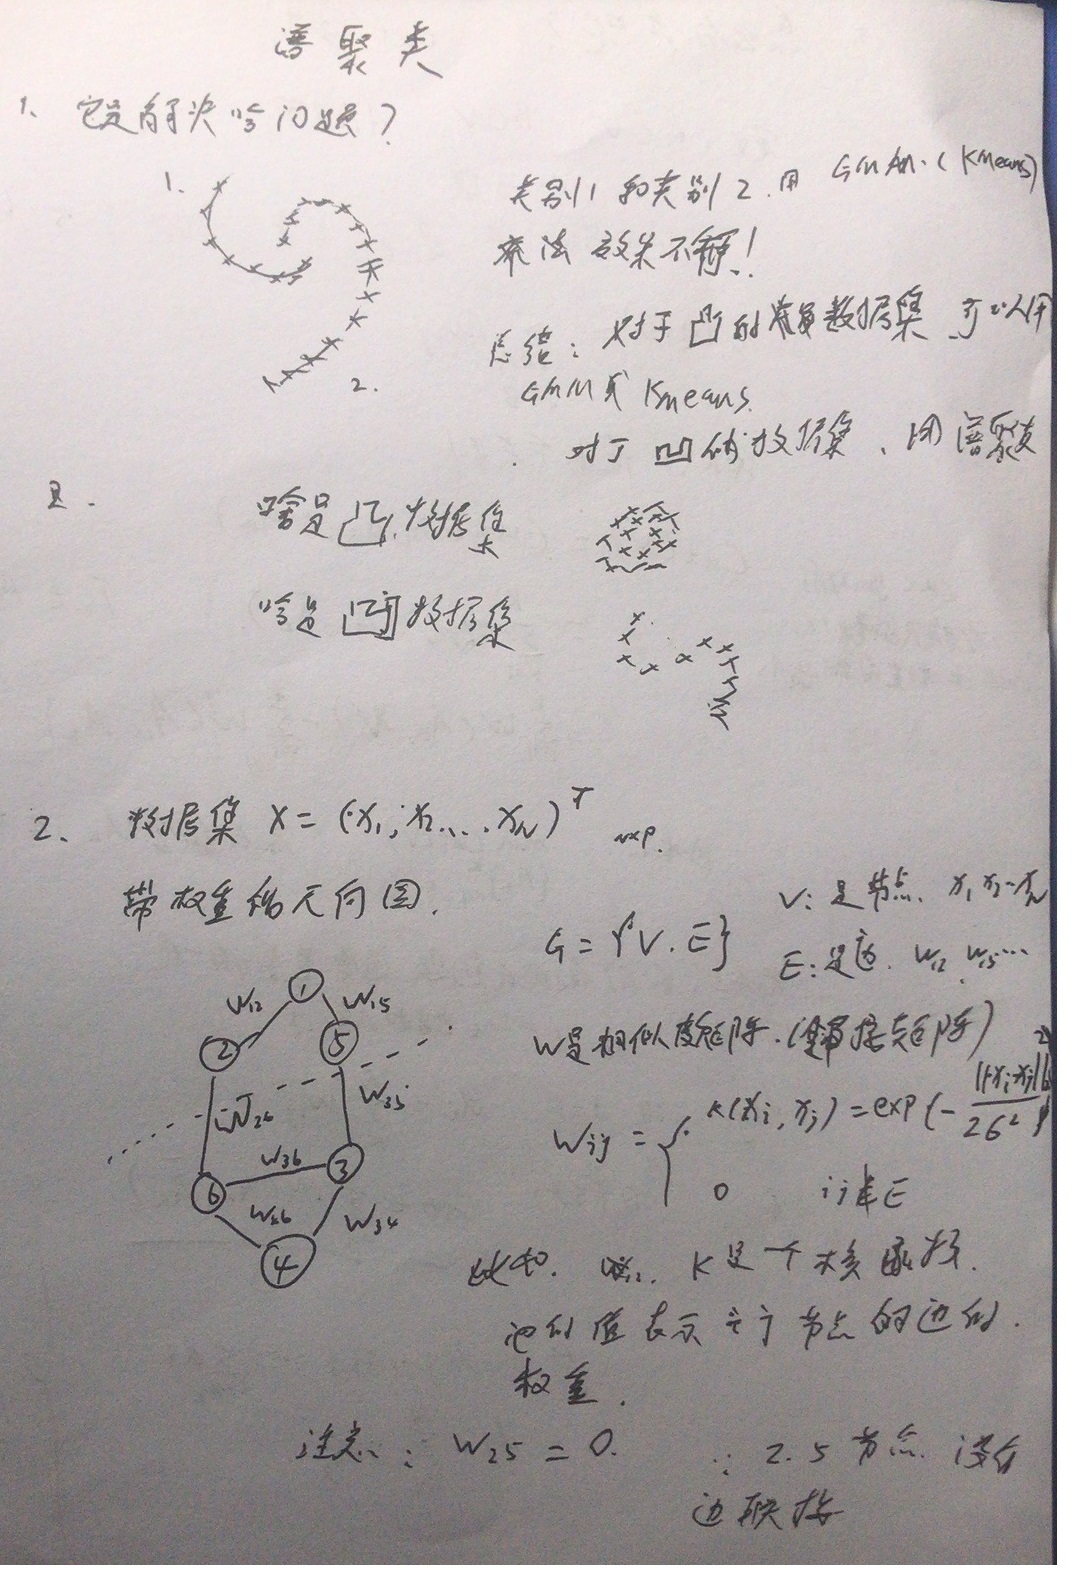 谱聚类
1、它是解决啥问题？
1.
2.
类别1和类别2.用 GMM.(Kmeans)
算法效果不好！
总结：对于凸的数据集可以用
GMM或Kmeans.
对于凹的数据集、用谱聚类
啥是凸数据集
啥是凹数据集
2、数据集 X = (x₁, x₂, ... x_N)ᵀ N×P.
带权重的无向图.
G = {V. E}
V: 是节点. x₁ x₂ ... x_N
E: 是边. W₁₂ W₁₅ ...
① ② ③ ④ ⑤ ⑥
W₁₂ W₁₅
W₂₆ W₃₅
W₃₆
W₄₆ W₃₄
W是相似度矩阵.(邻接矩阵)
Wᵢⱼ = { K(xᵢ, xⱼ) = exp(-||xᵢ-xⱼ||²/2σ²)
0 ij∉E
此中. K是一个核函数.
它的值表示两个节点的边的.
权重.
注意: W₂₅ = 0. ∵ 2.5 节点没有
边联接